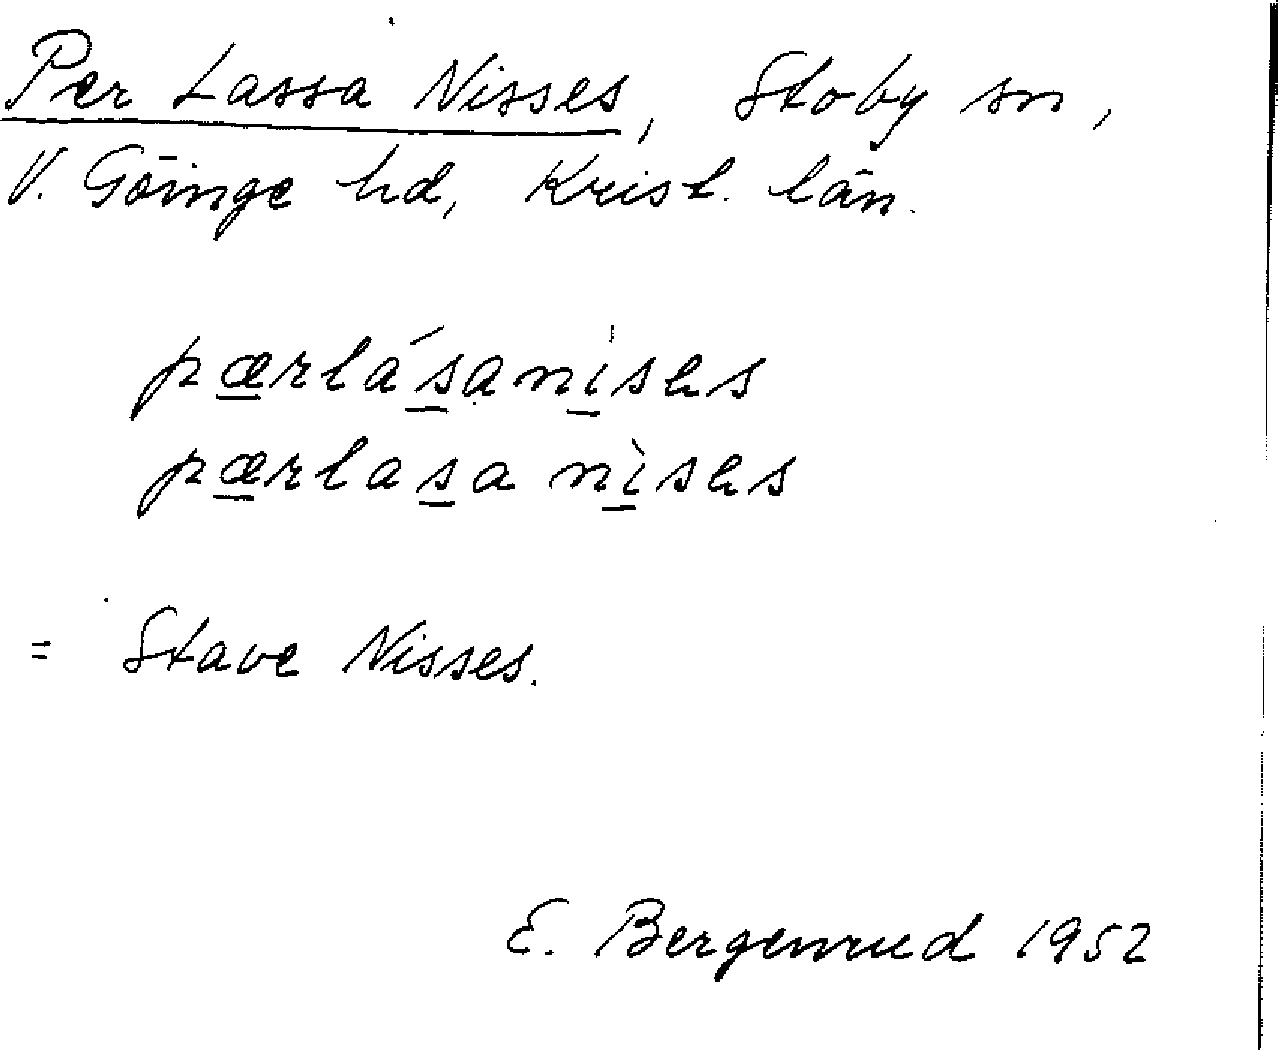 Per Lassa Nisses, Stoby sn,
V. Göinge hd, Krist. län.
pærlásanises
pærlasa nìses
= Stave Nisses.
E. Bergenrud 1952